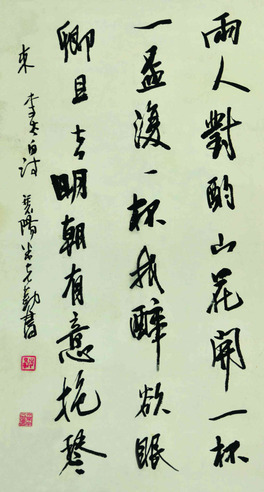 兩人對酌山花開一杯
一盃復一杯我醉欲眠
卿且去明朝有意抱琴
來 李太白詩 襄陽米